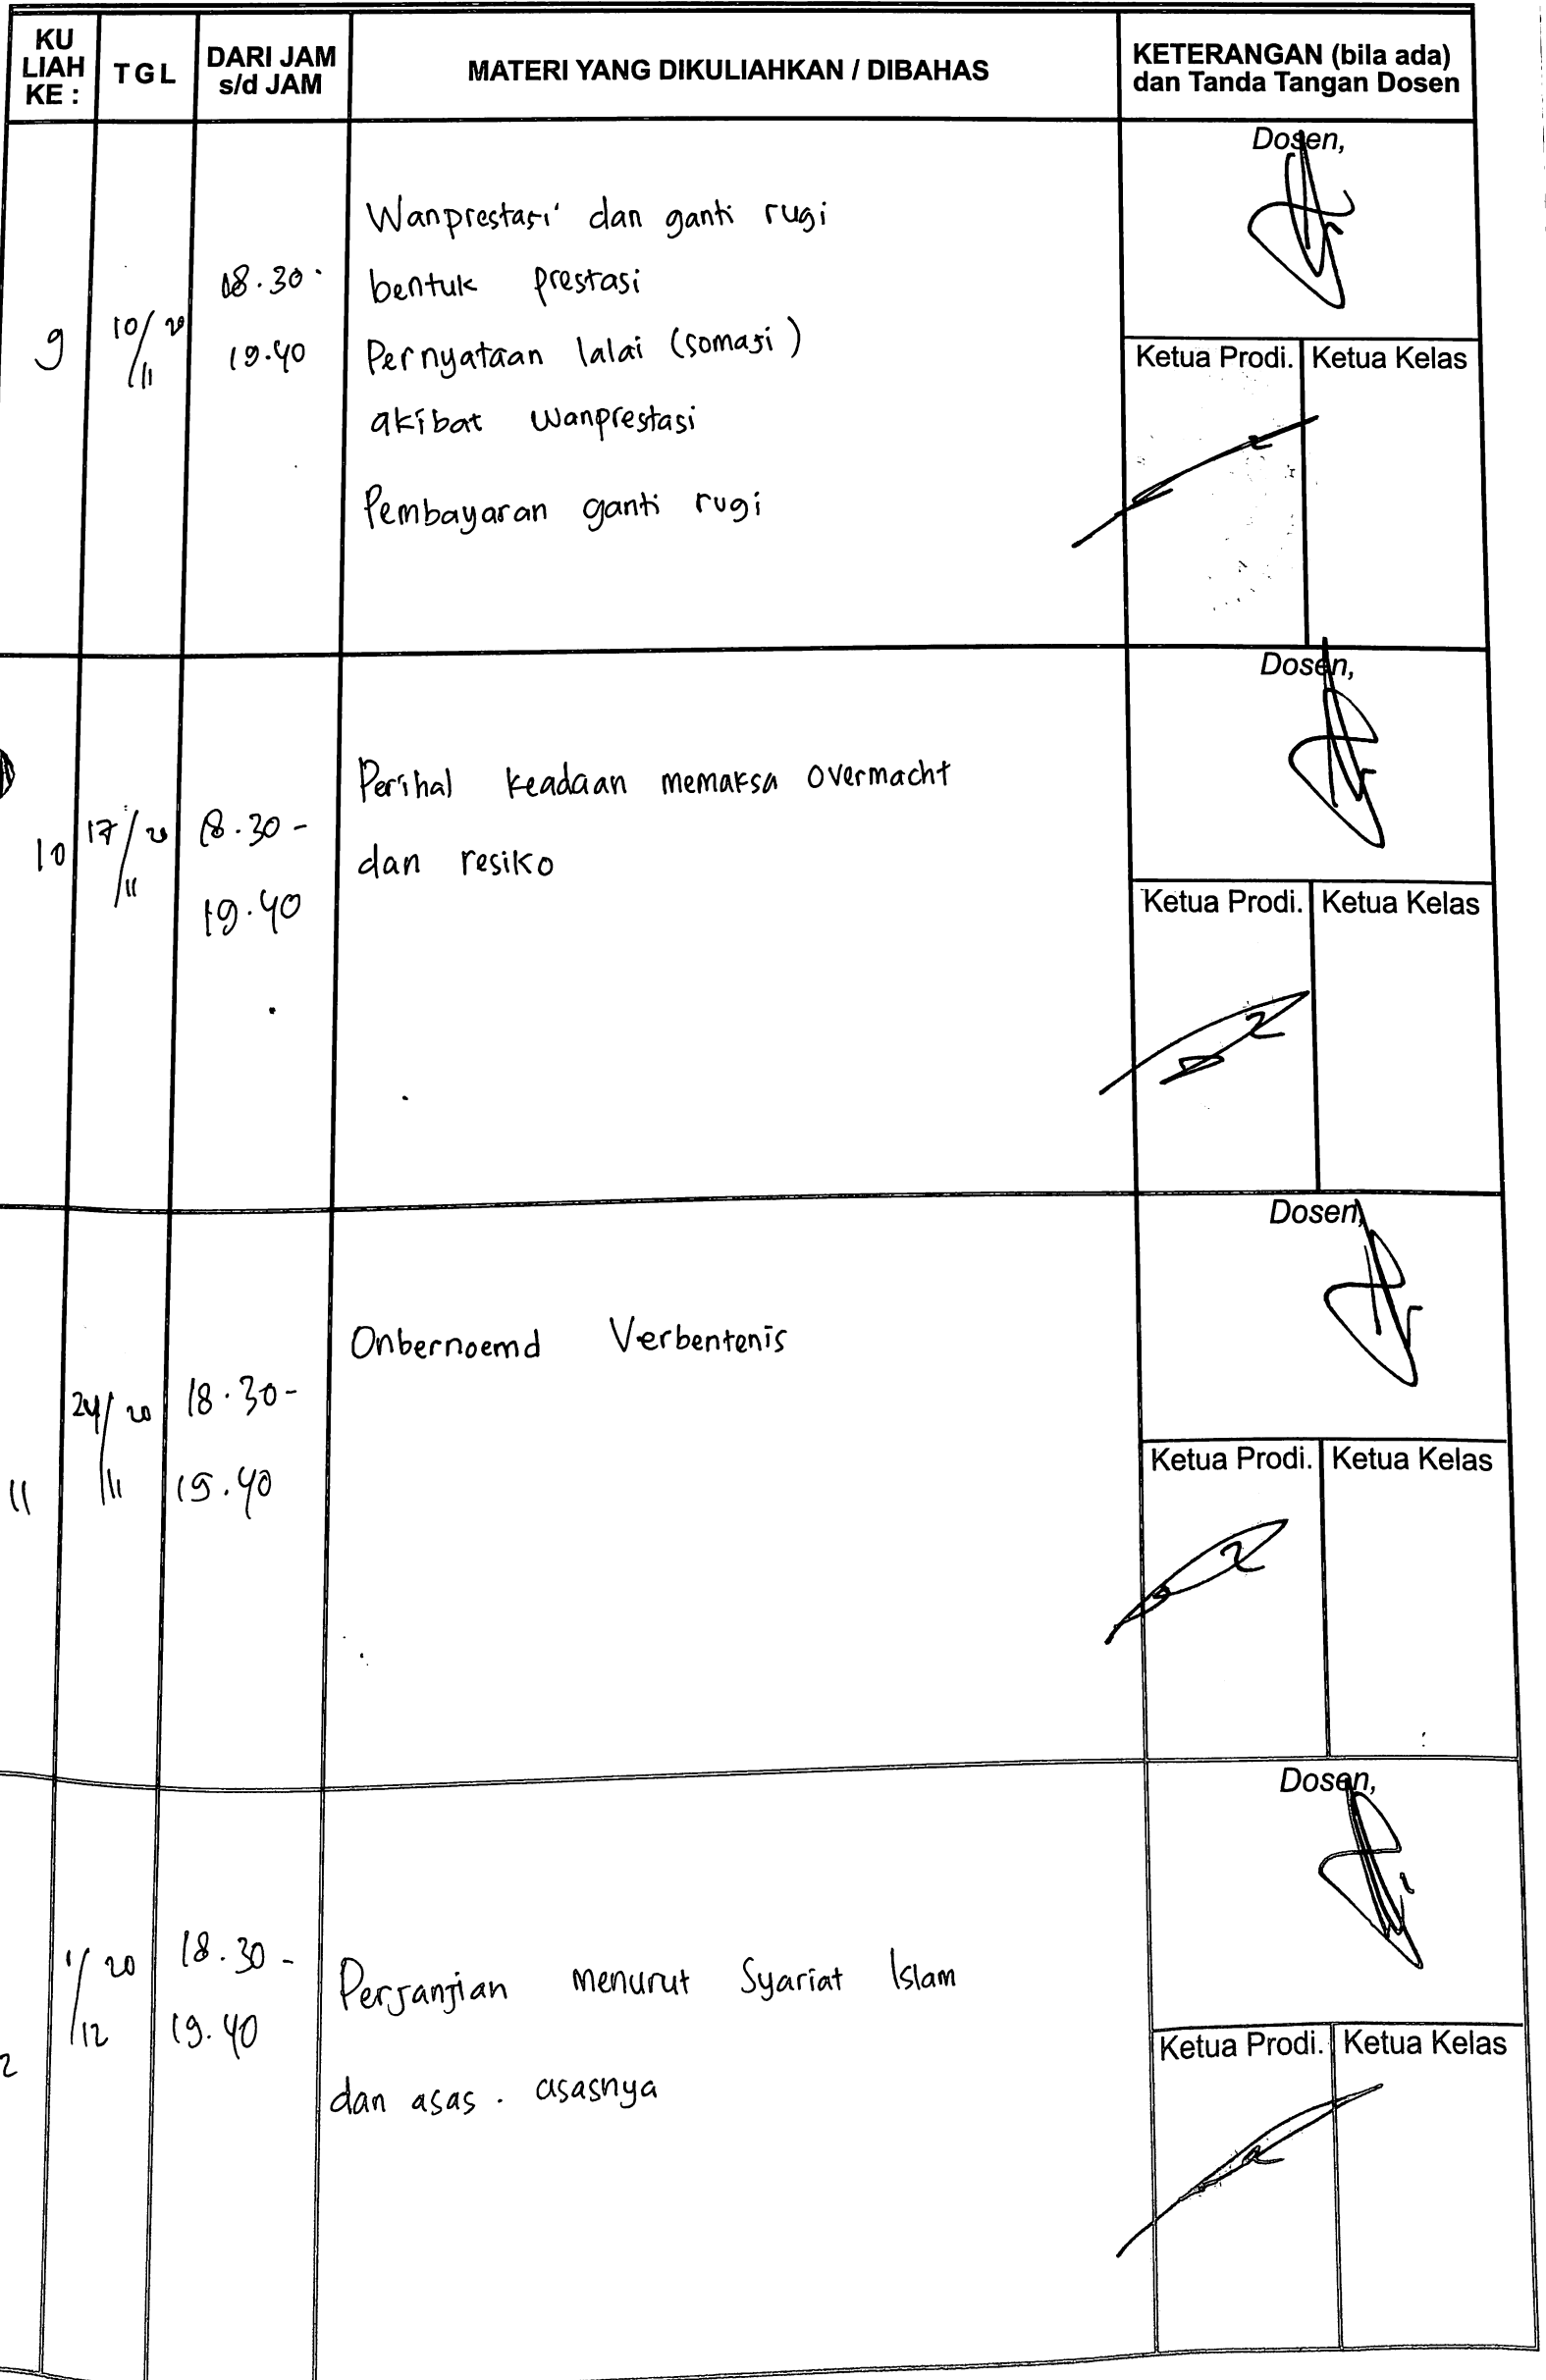 KU LIAH KE :
TGL
DARI JAM s/d JAM
MATERI YANG DIKULIAHKAN / DIBAHAS
KETERANGAN (bila ada) dan Tanda Tangan Dosen
9
10/11 20
18.30-
19.40
Wanprestasi dan ganti rugi
bentuk prestasi
Pernyataan lalai (somasi)
akibat wanprestasi
Pembayaran ganti rugi
Dosen,
Ketua Prodi.
Ketua Kelas
10
17/11 20
18.30 -
19.40
Perihal keadaan memaksa overmacht
dan resiko
Dosen,
Ketua Prodi.
Ketua Kelas
11
24/11 20
18.30 -
19.40
Onbernoemd Verbentenis
Dosen,
Ketua Prodi.
Ketua Kelas
2
1/12 20
18.30 -
19.40
Perjanjian menurut Syariat Islam
dan asas . asasnya
Dosen,
Ketua Prodi.
Ketua Kelas